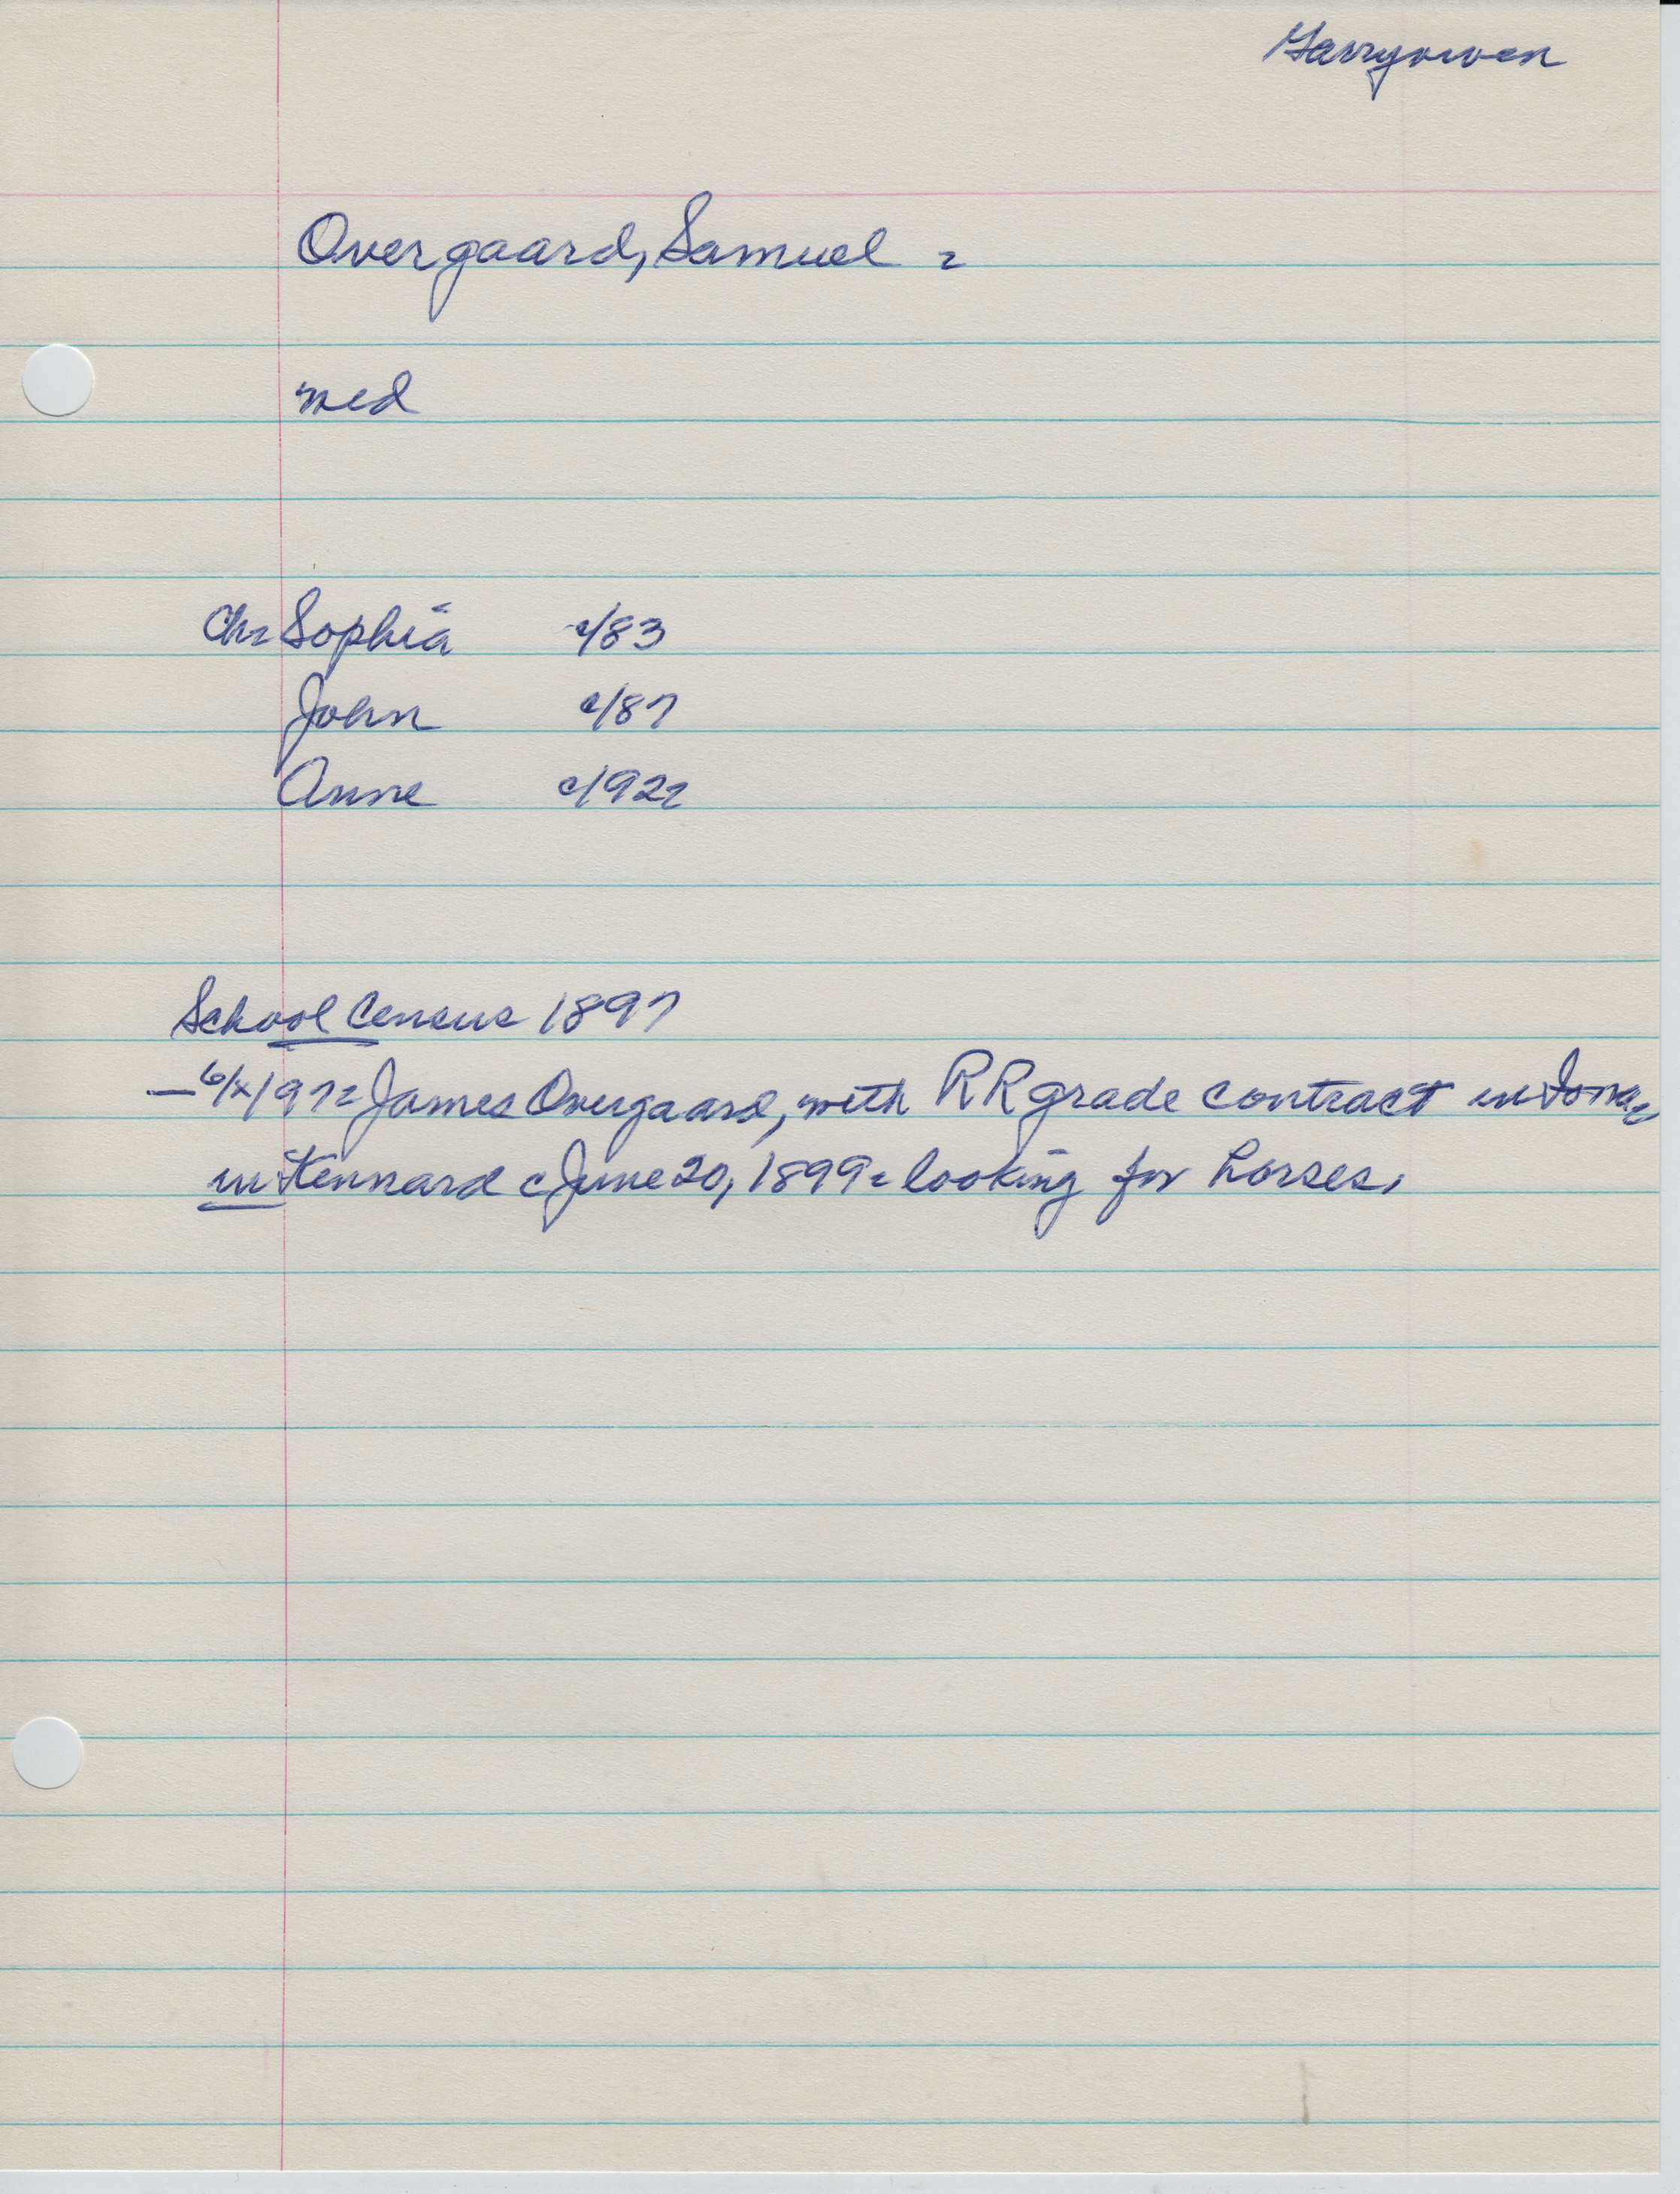 Garryowen
Overgaard, Samuel =
med
Ch= Sophia c/83
John c/87
Anne c/92=
School Census 1897
James Overgaard, with RR grade contract in Iowa,
in Kennard c June 20, 1899 = looking for horses.